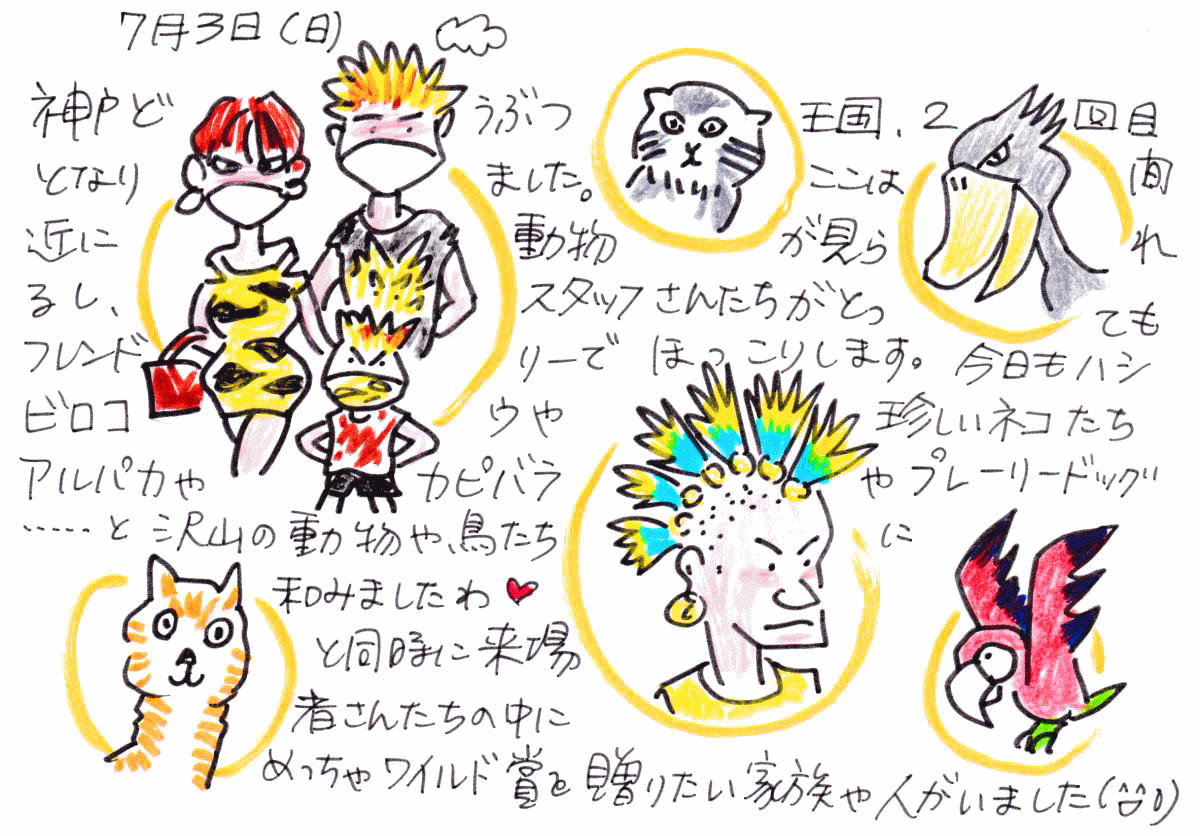 7月3日(日)
神戸どうぶつ王国、2回目
となりました。ここは間
近に動物が見られ
るし、スタッフさんたちがとっても
フレンドリーでほっこりします。今日もハシ
ビロコウや珍しいネコたち
アルパカやカピバラやプレーリードッグ
……と沢山の動物や、鳥たちに
和みましたわ♥
と同時に来場
者さんたちの中に
めっちゃワイルド賞を贈りたい家族や人がいました(^益^;)